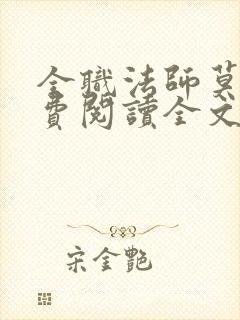 全職法師莫
費閱讀全文
宋金艷